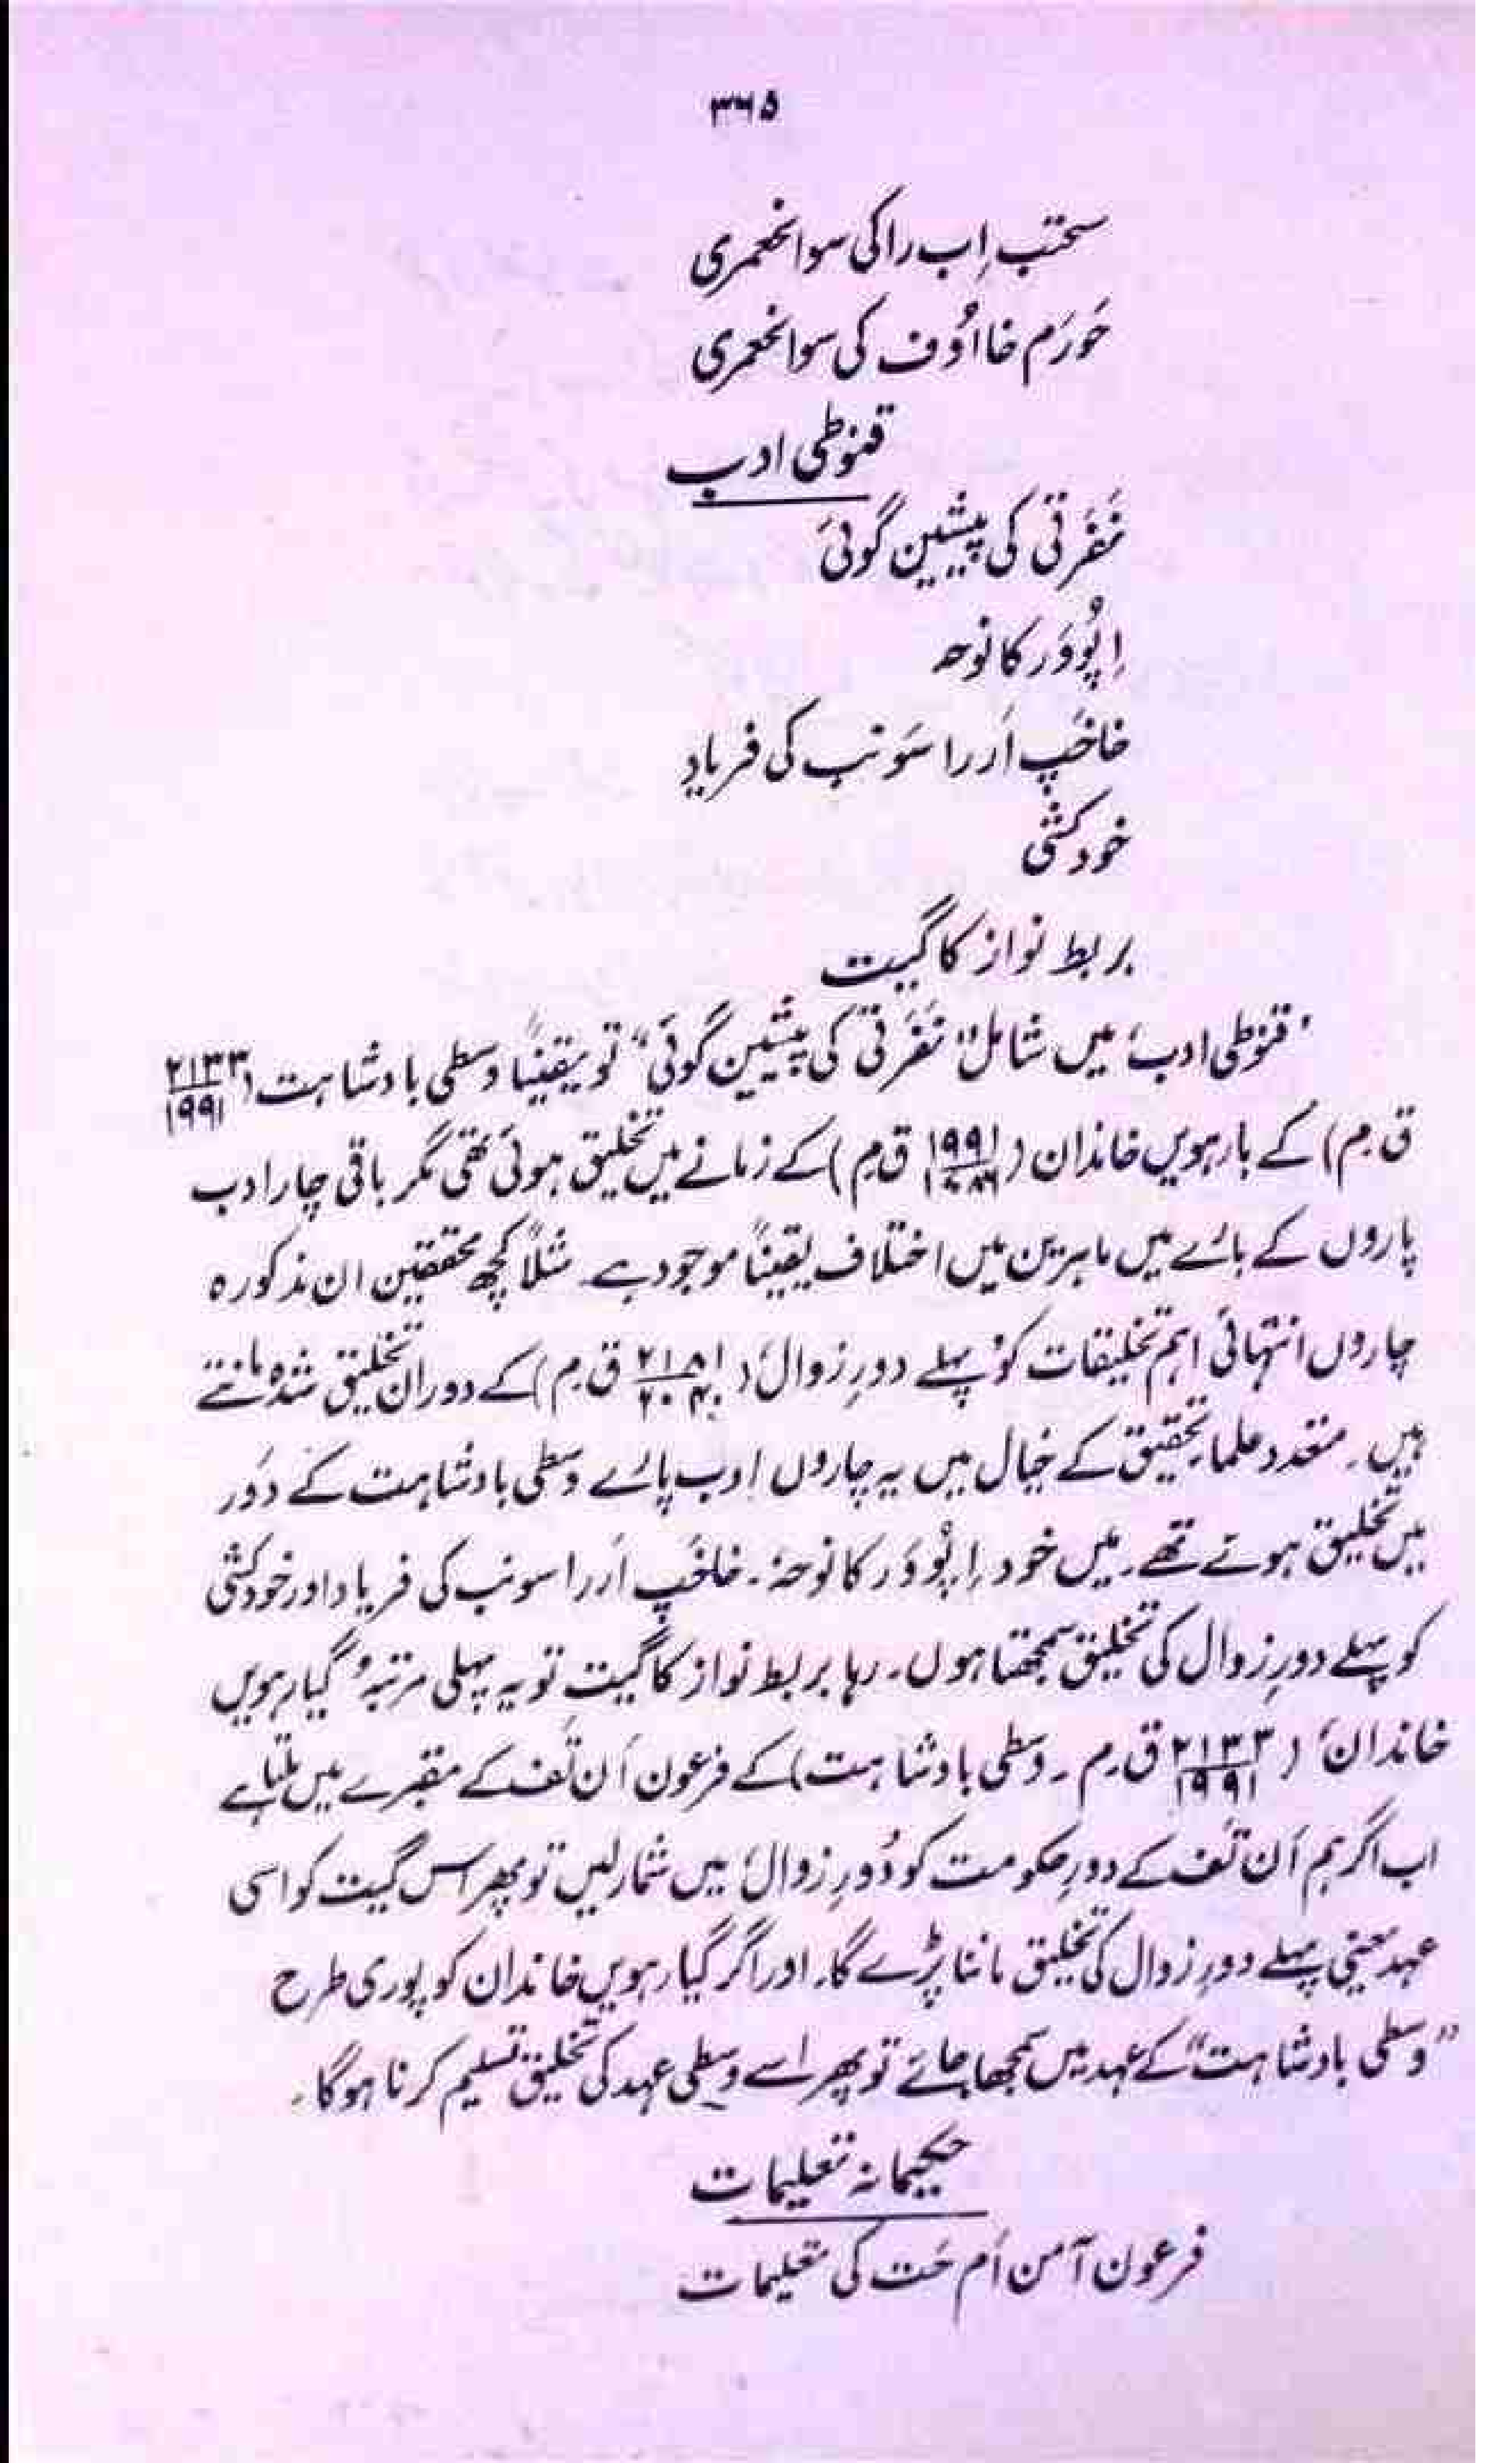 ۳۶۵
سختب اِب را کی سوانحعمری
حَورَم خااُوف کی سوانحعمری
قنوطی ادب
نَفَرتی کی پیشین گوئی
اِپُووَر کا نوحہ
خاخَپ اَررا سَونب کی فریاد
خودکشی
بربط نواز کا گیت
'قنوطی ادب' میں شامل "نَفَرتی کی پیشین گوئی" تو یقیناً وسطی بادشاہت (۲۱۳۳/۱۹۹۱
ق.م) کے بارہویں خاندان (۱۹۹۱/۱۷۸۶ ق.م) کے زمانے میں تخلیق ہوئی تھی مگر باقی چار ادب
پاروں کے بارے میں ماہرین میں اختلاف یقیناً موجود ہے۔ مثلاً کچھ محققین ان مذکورہ
چاروں انتہائی اہم تخلیقات کو 'پہلے دورِ زوال' (۲۱۸۱/۲۰۴۰ ق.م) کے دوران تخلیق شدہ مانتے
ہیں۔ متعدد علماء تحقیق کے خیال میں یہ چاروں ادب پارے وسطی بادشاہت کے دَور
میں تخلیق ہوتے تھے۔ میں خود 'اِپُووَر کا نوحہ'۔ خاخَپ اَررا سونب کی فریاد اور خودکشی
کو پہلے دورِ زوال کی تخلیق سمجھتا ہوں۔ رہا بربط نواز کا گیت تو یہ پہلی مرتبہ 'گیارہویں
خاندان' (۲۱۳۳/۱۹۹۱ ق.م۔ وسطی بادشاہت) کے فرعون اَن تَف کے مقبرے میں ملتا ہے
اب اگر ہم اَن تَف کے دورِ حکومت کو 'دورِ زوال' میں شمار لیں تو پھر اس گیت کو اسی
عہد یعنی پہلے دورِ زوال کی تخلیق ماننا پڑے گا۔ اور اگر گیارہویں خاندان کو پوری طرح
"وسطی بادشاہت" کے عہد میں سمجھا جائے تو پھر اسے وسطی عہد کی تخلیق تسلیم کرنا ہوگا۔
حکیمانہ تعلیمات
فرعون آمن اَم حَت کی تعلیمات